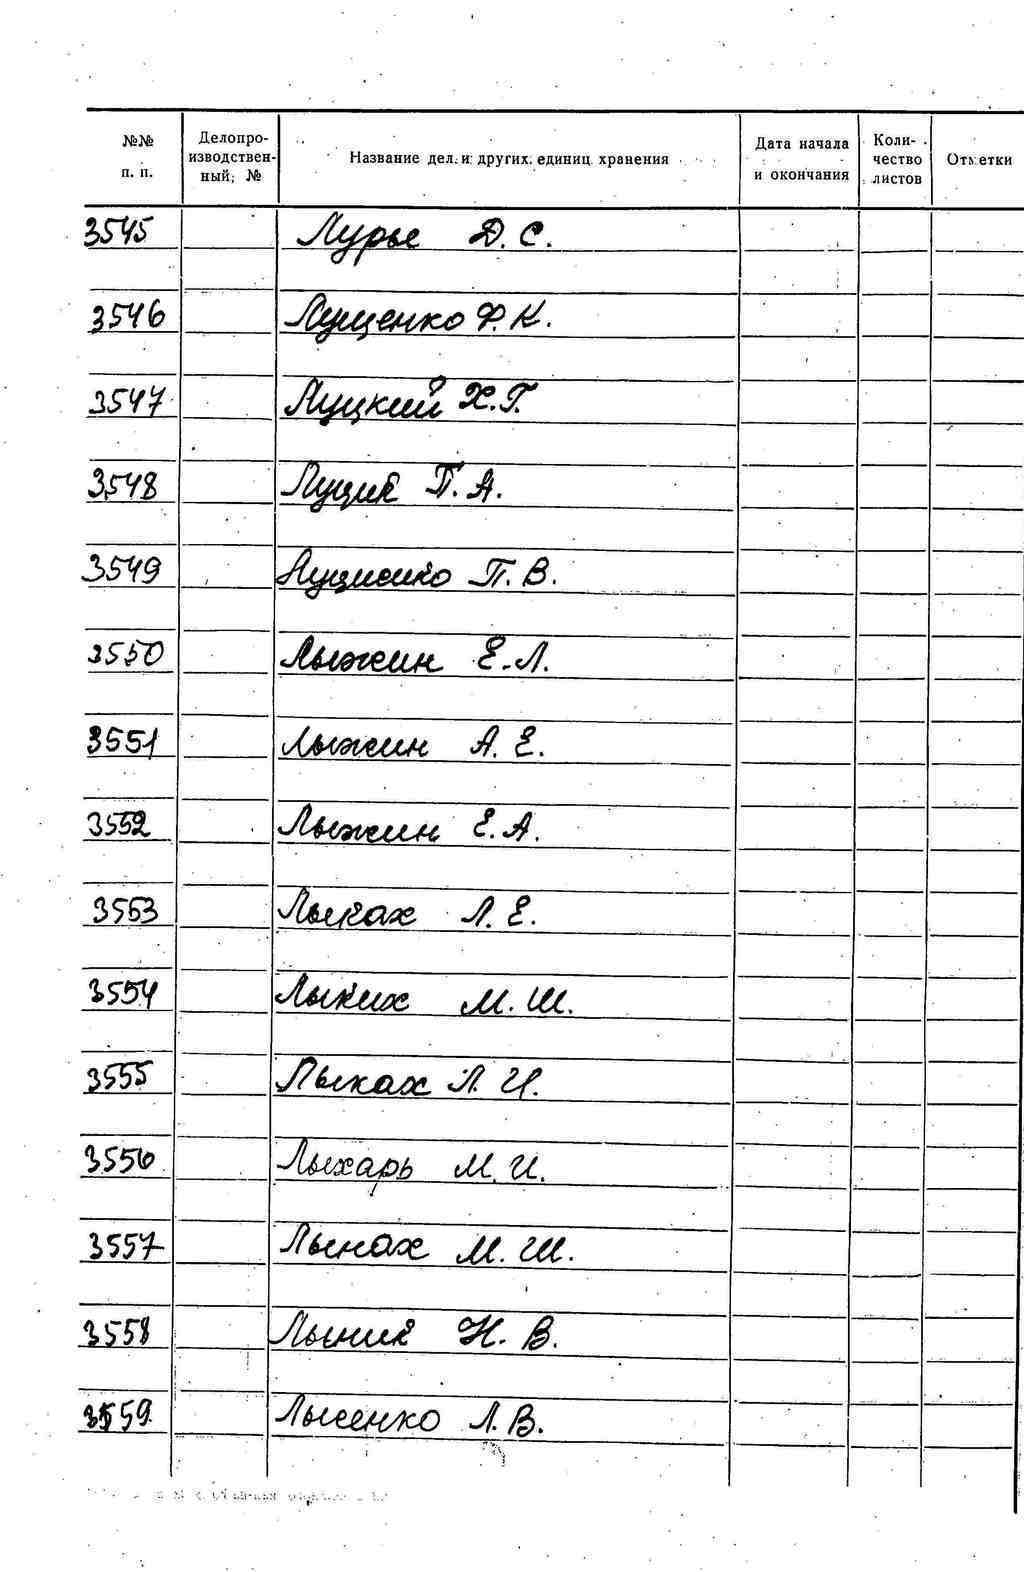 №№ п. п.
Делопро-изводствен-ный; №
Название дел и других единиц хранения
Дата начала и окончания
Коли-чество листов
Отметки
3545 Лурье Д. С.
3546 Лущенко Ф. К.
3547 Луцкий Х. Г.
3548 Луцик П. А.
3549 П. В.
3550 Лыжин Е. Л.
3551 Лыжин А. Е.
3552 Лыжин Е. А.
3553 Лыках Л. Е.
3554 Лыких М. Ш.
3555 Лыках Л. И.
3556 Лыхарь М. И.
3557 Лынах М. Ш.
3558 Лыник Н. В.
3559 Лысенко Л. В.